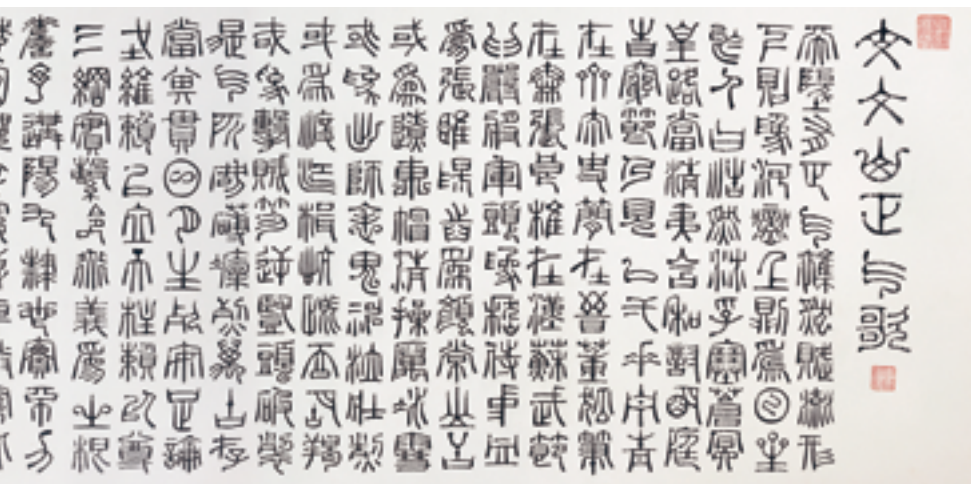 文文山正气歌
天地有正气雜然賦流形
下則為河嶽上則為日星
於人曰浩然沛乎塞蒼冥
皇路當清夷含和吐明庭
時窮節乃見一一垂丹青
在齊太史簡在晉董狐筆
在秦張良椎在漢蘇武節
為嚴將軍頭為嵇侍中血
為張睢陽齒為顏常山舌
或為遼東帽清操厲冰雪
或為出師表鬼神泣壯烈
或為渡江楫慷慨吞胡羯
或為擊賊笏逆豎頭破裂
是气所磅礴凜烈萬古存
當其貫日月生死安足論
地維賴以立天柱賴以尊
三綱實繫命道義為之根
嗟予遘陽九隸也實不力